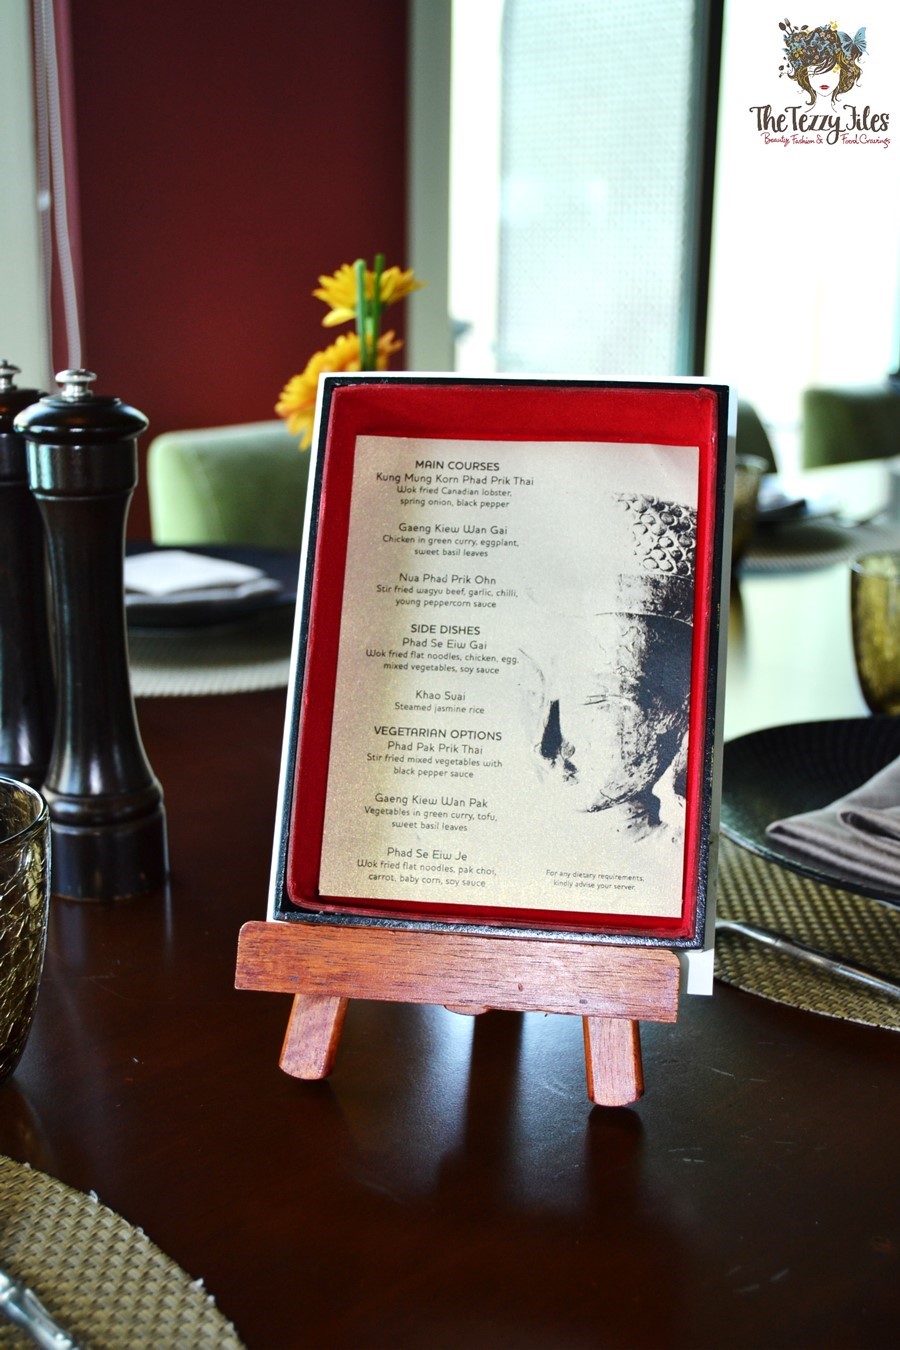 The Tezzy Files
Beauty, Fashion & Food Cravings
MAIN COURSES
Kung Mung Korn Phad Prik Thai
Wok fried Canadian lobster,
spring onion, black pepper
Gaeng Kiew Wan Gai
Chicken in green curry, eggplant,
sweet basil leaves
Nua Phad Prik Ohn
Stir fried wagyu beef, garlic, chilli,
young peppercorn sauce
SIDE DISHES
Phad Se Eiw Gai
Wok fried flat noodles, chicken, egg,
mixed vegetables, soy sauce
Khao Suai
Steamed jasmine rice
VEGETARIAN OPTIONS
Phad Pak Prik Thai
Stir fried mixed vegetables with
black pepper sauce
Gaeng Kiew Wan Pak
Vegetables in green curry, tofu,
sweet basil leaves
Phad Se Eiw Je
Wok fried flat noodles, pak choi,
carrot, baby corn, soy sauce
For any dietary requirements,
kindly advise your server.